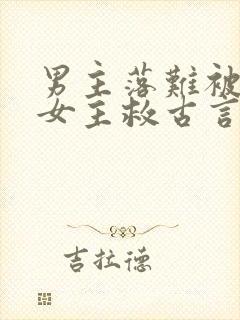 男主落難被
女主救古言
吉拉德